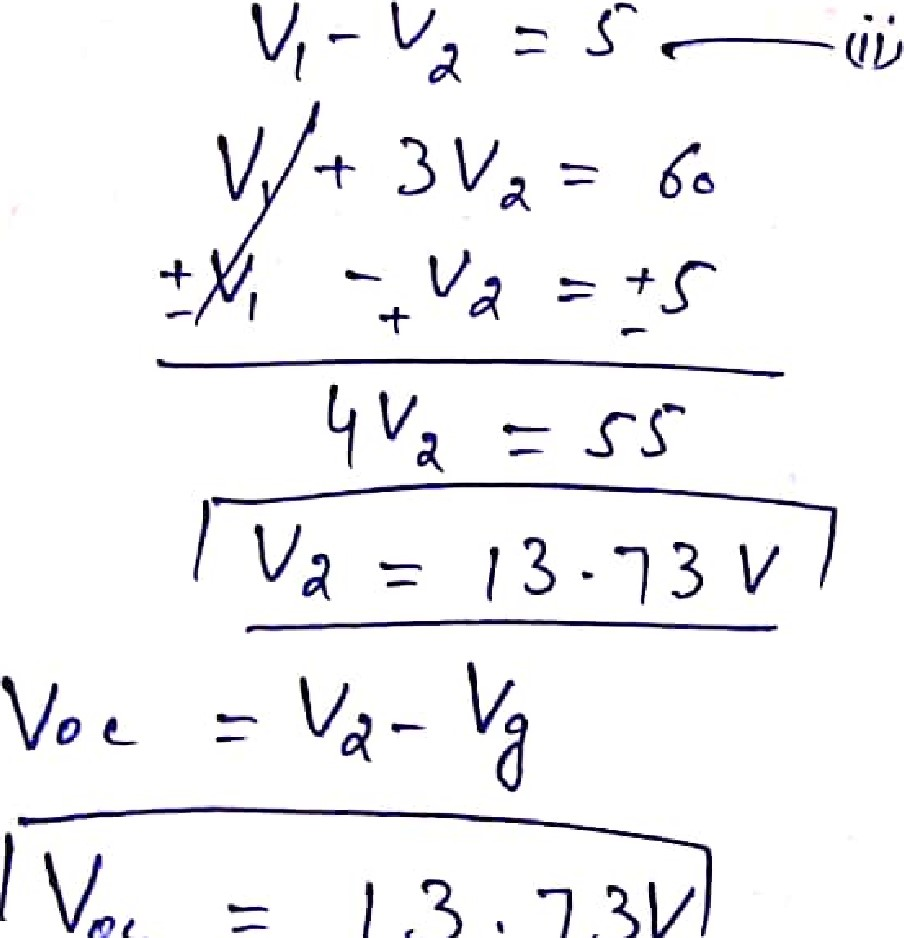 V₁ - V₂ = 5 — (ii)
V₁ + 3V₂ = 60
±V₁ -₊ V₂ = ±5
4V₂ = 55
V₂ = 13.73 V
Voc = V₂ - Vg
Voc = 13.73V